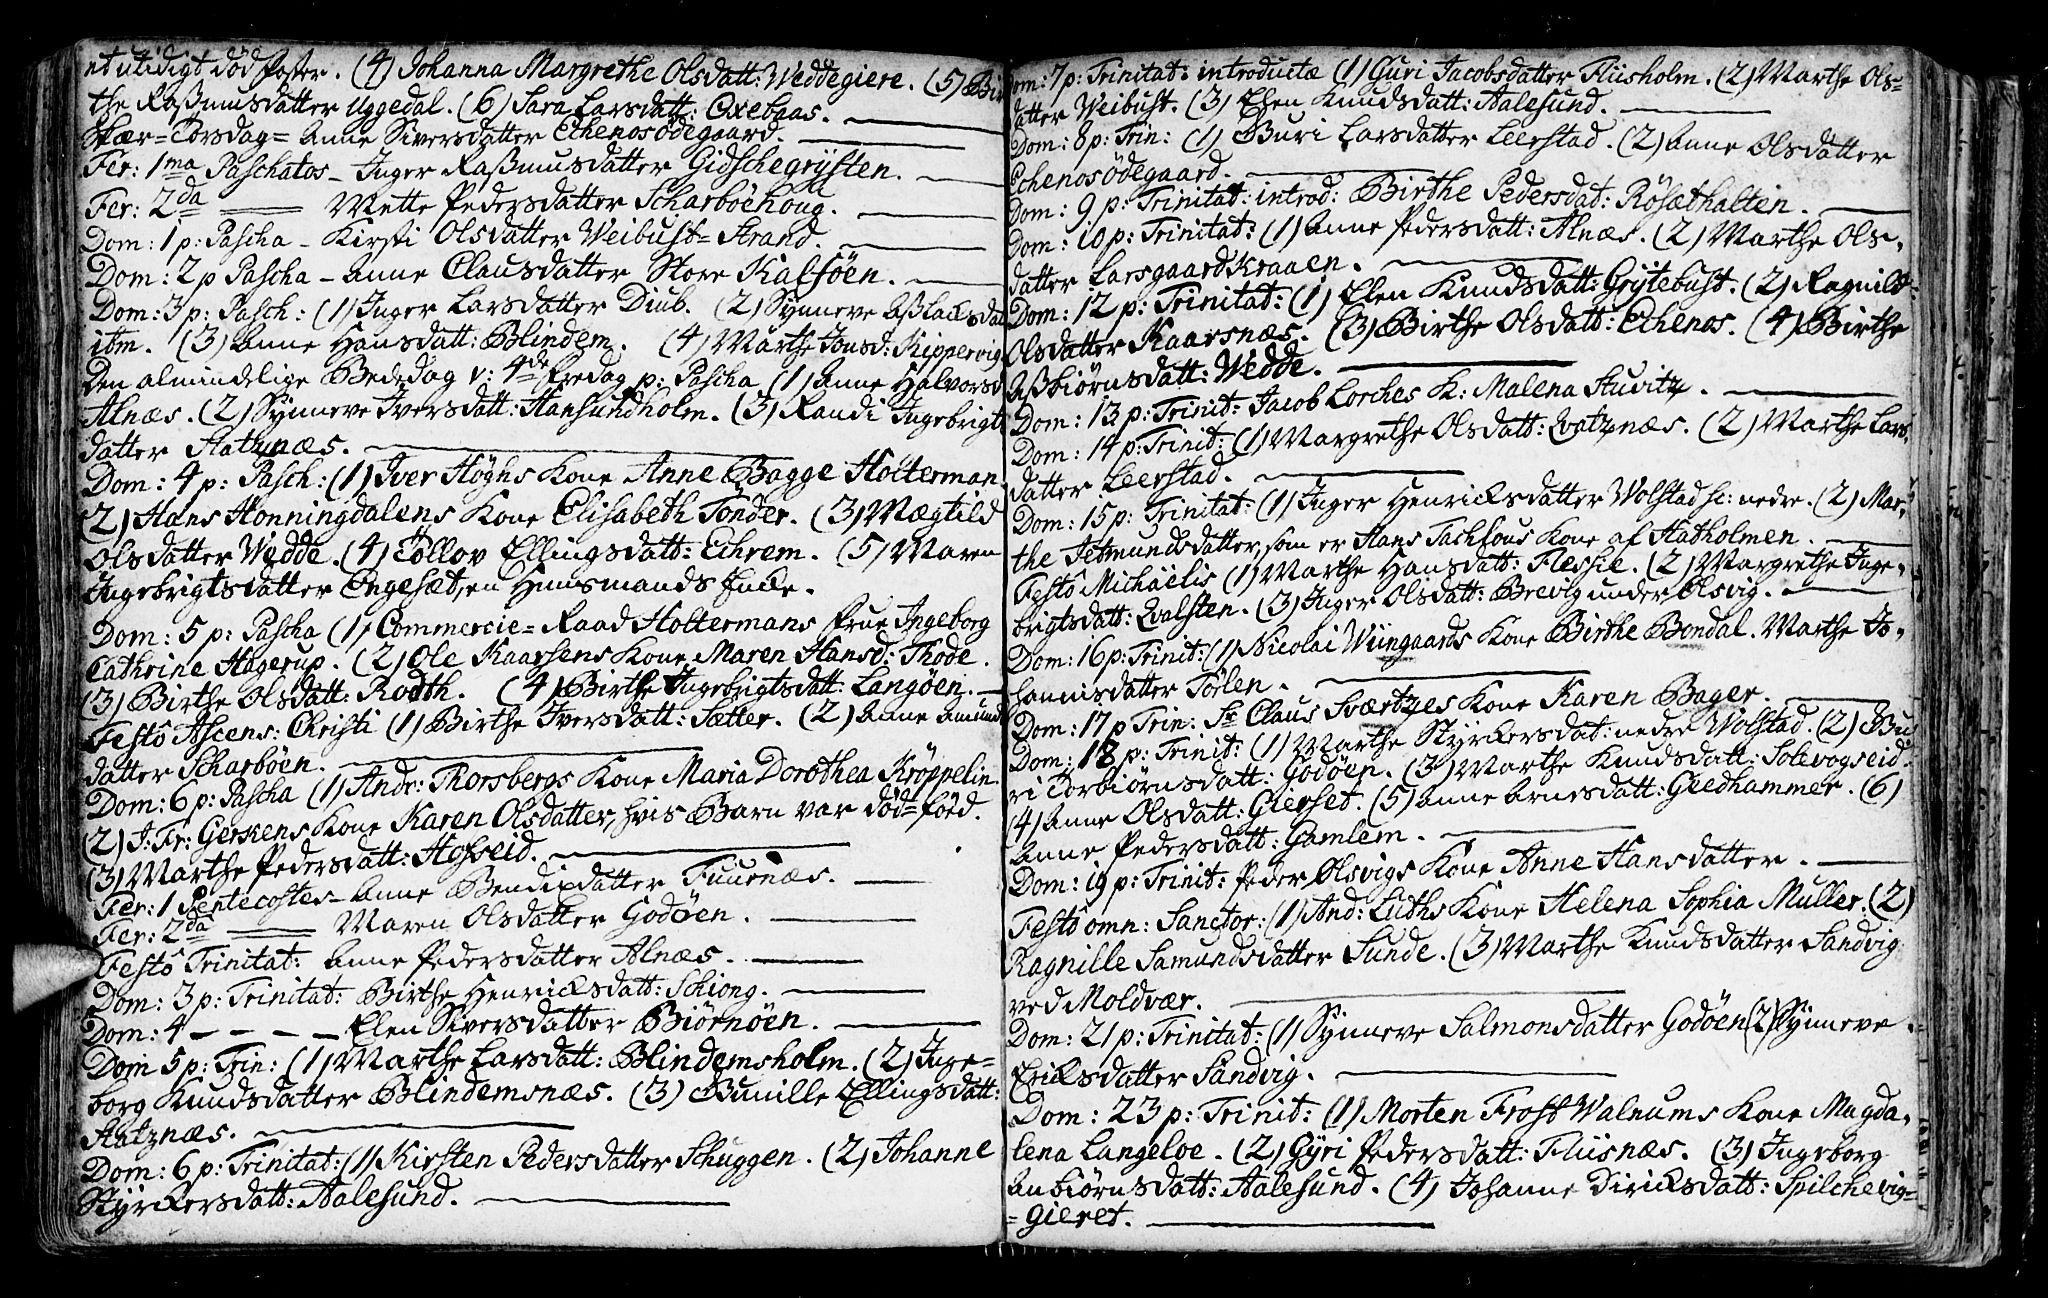 et utidigt død foster. (4) Johanna Margrethe Olsdatt: Weddegiere. (5) Bir
the Raßmusdatter Uggedal. (6) Sara Larsdatt: Oxebaas.
Skær=Torsdag= Anne Siversdatter Echenosødegaard.
Fer: 1ma Paschatos – Inger Raßmusdatter Gidschegrÿften.
Fer: 2da Mette Pedersdatter Scharbøehoug.
Dom: 1 p: Pascha – Kirsti Olsdatter Weibust=Strand.
Dom: 2 p Pascha – Anne Clausdatter Store Kalføen.
Dom: 3 p: Pasch: (1) Inger Larsdatter Diub. (2) Synneve Aßlacksdat
ibm. (3) Anne Hansdatt: Blindem. (4) Marthe Jonsd: Kippervig
Den almindelige Bededag v: 4de fredag p: Pascha (1) Anne Halvorsd
Alnæs. (2) Synneve Iversdatt: Hansundholm. (3) Randi Ingebrigt
datter Hatznæs.
Dom: 4 p: Pasch: (1) Iver Høghs Kone Anne Bagge Holterman
(2) Hans Honningdalens Kone Elisabeth Tønder. (3) Mægtild
Olsdatter Wedde. (4) Tollov Ellingsdatt: Echrem. (5) Maren
Ingebrigtsdatter Engesæt, en Huusmands Encke.
Dom: 5 p: Pascha (1) Commercie=Raad Holtermans Frue Ingeborg
Cathrine Hagerup. (2) Ole Kaarsens Kone Maren Hansd: Thode.
(3) Birthe Olsdatt: Rodth. (4) Birthe Ingebrigtsdatt: Langøen.
Festô Ascens: Christi (1) Birthe Iversdatt: Sætter. (2) Anne Amund
datter Scharbøen.
Dom: 6 p: Pascha (1) Andr: Thorsbergs Kone Maria Dorothea Krøppelin
(2) J: Fr: Gerskens Kone Karen Olsdatter, hvis Barn var død=fød.
(3) Marthe Pedersdatt: Hofseid.
Fer: 1 Pentecostes – Anne Bendixdatter Tuuenæs.
Fer: 2da Maren Olsdatter Godøen.
Festô Trinitat: Anne Pedersdatter Alnæs.
Dom: 3 p: Trinitat: Birthe Henricksdatt: Schiong.
Dom: 4 – – – – Elen Siversdatter Biørnøen.
Dom 5 p: Trin: (1) Marthe Larsdatt: Blindemsholm. (2) Inge=
borg Knudsdatter Blindemsnæs. (3) Gunille Ellingsdatt:
Hatznæs.
Dom: 6 p: Trinitat: (1) Kirsten Pedersdatter Schuggen. (2) Johanne
Styrckersdatt: Aalesund.
Dom: 7 p: Trinitat: introductæ (1) Guri Jacobsdatter Fliisholm. (2) Marthe Ols=
datter Weibust. (3) Elen Knudsdatt: Aalesund.
Dom: 8 p: Trin: (1) Guri Larsdatter Leerstad. (2) Anne Olsdatter
Echenosødegaard.
Dom: 9 p: Trinitat: introd: Birthe Pedersdat: Røsæthalten.
Dom: 10 p: Trinitat: (1) Anne Pedersdatt: Alnæs. (2) Marthe Ols=
datter Larsgaardkraaen.
Dom: 12 p: Trinitat: (1) Elen Knudsdatt: Grÿtebust. (2) Ragnild
Olsdatter Kaarsnæs. (3) Birthe Olsdatt: Echenos. (4) Birthe
Aßbiørnsdatt: Wedde.
Dom: 13 p: Trinit: Jacob Lorches K: Malena Studitz.
Dom: 14 p: Trinit: (1) Margrethe Olsdatt: Qvatznæs. (2) Marthe Lars=
datter Leerstad.
Dom: 15 p: Trinitat: (1) Inger Henricksdatter Wolstad sc: nedre. (2) Mar=
the Jetmundsdatter, som er Hans Tachlous Kone af Hatholmen.
Festô Michaëlis (1) Marthe Hansdatt: Flessie. (2) Margrethe Inge=
brigtsdatt: Qvalsten. (3) Inger Olsdatt: Brevig under Olsvig.
Dom: 16 p: Trinit: (1) Nicolai Wiingaards Kone Birthe Bondal. Marthe Jo=
hannisdatter Torlen.
Dom: 17 p Trin: Sr Claus Sværtzes Kone Karen Bager.
Dom: 18 p: Trinit: (1) Marthe Styrckersdat: nedre Wolstad. (2) Gu=
ri Torbiørnsdatt: Godøen. (3) Marthe Knudsdatt: Solevogseid.
(4) Anne Olsdatt: Gierset. (5) Anne Arnesdatt: Geedhammer. (6)
Anne Pedersdatt: Gamlem.
Dom: 19 p: Trinit: Peder Olsvigs Kone Anne Hansdatter.
Festô omn: Sanctor: (1) And: Luths Kone Helena Sophia Muller. (2)
Ragnille Samundsdatter Sunde. (3) Marthe Knudsdatter Sandvig
ved Moldvær.
Dom: 21 p: Trinitat: (1) Synneve Salmonsdatter Godøen (2) Synneve
Ericksdatter Sandvig.
Dom: 23 p: Trinit: (1) Morten Frost Walnums Kone Magda=
lena Langeloe. (2) Gÿri Pedersdatt: Fliisnæs. (3) Ingeborg
Anbiørnsdatt: Aalesund. (4) Johanne Diricksdatt: Spilchevig=
=gieret.